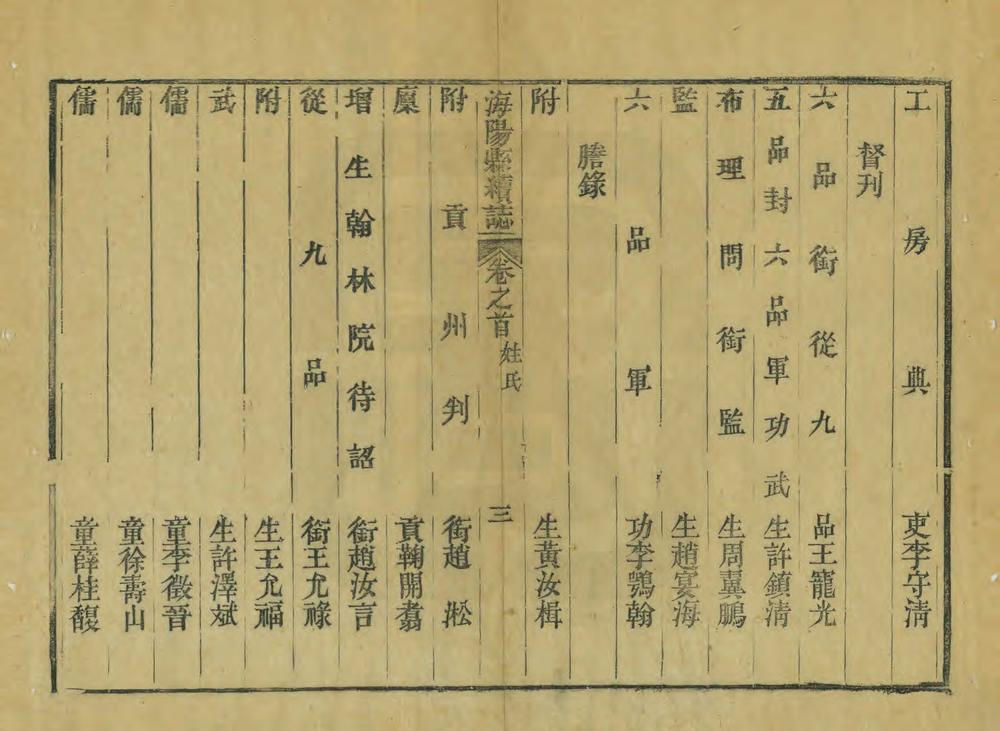 工房典吏李守清
督刊
六品銜從九品王寵光
五品封六品軍功武生許鎮清
布理問銜監生周翼鵬
監生趙宴海
六品軍功李鶚翰
謄錄
附生黃汝楫
海陽縣續誌 卷之首 姓氏 三
附貢州判銜趙淞
廩貢鞠開翥
增生翰林院待詔銜趙汝言
從九品銜王允祿
附生王允福
武生許澤斌
儒童李徵晉
儒童徐壽山
儒童薛桂馥